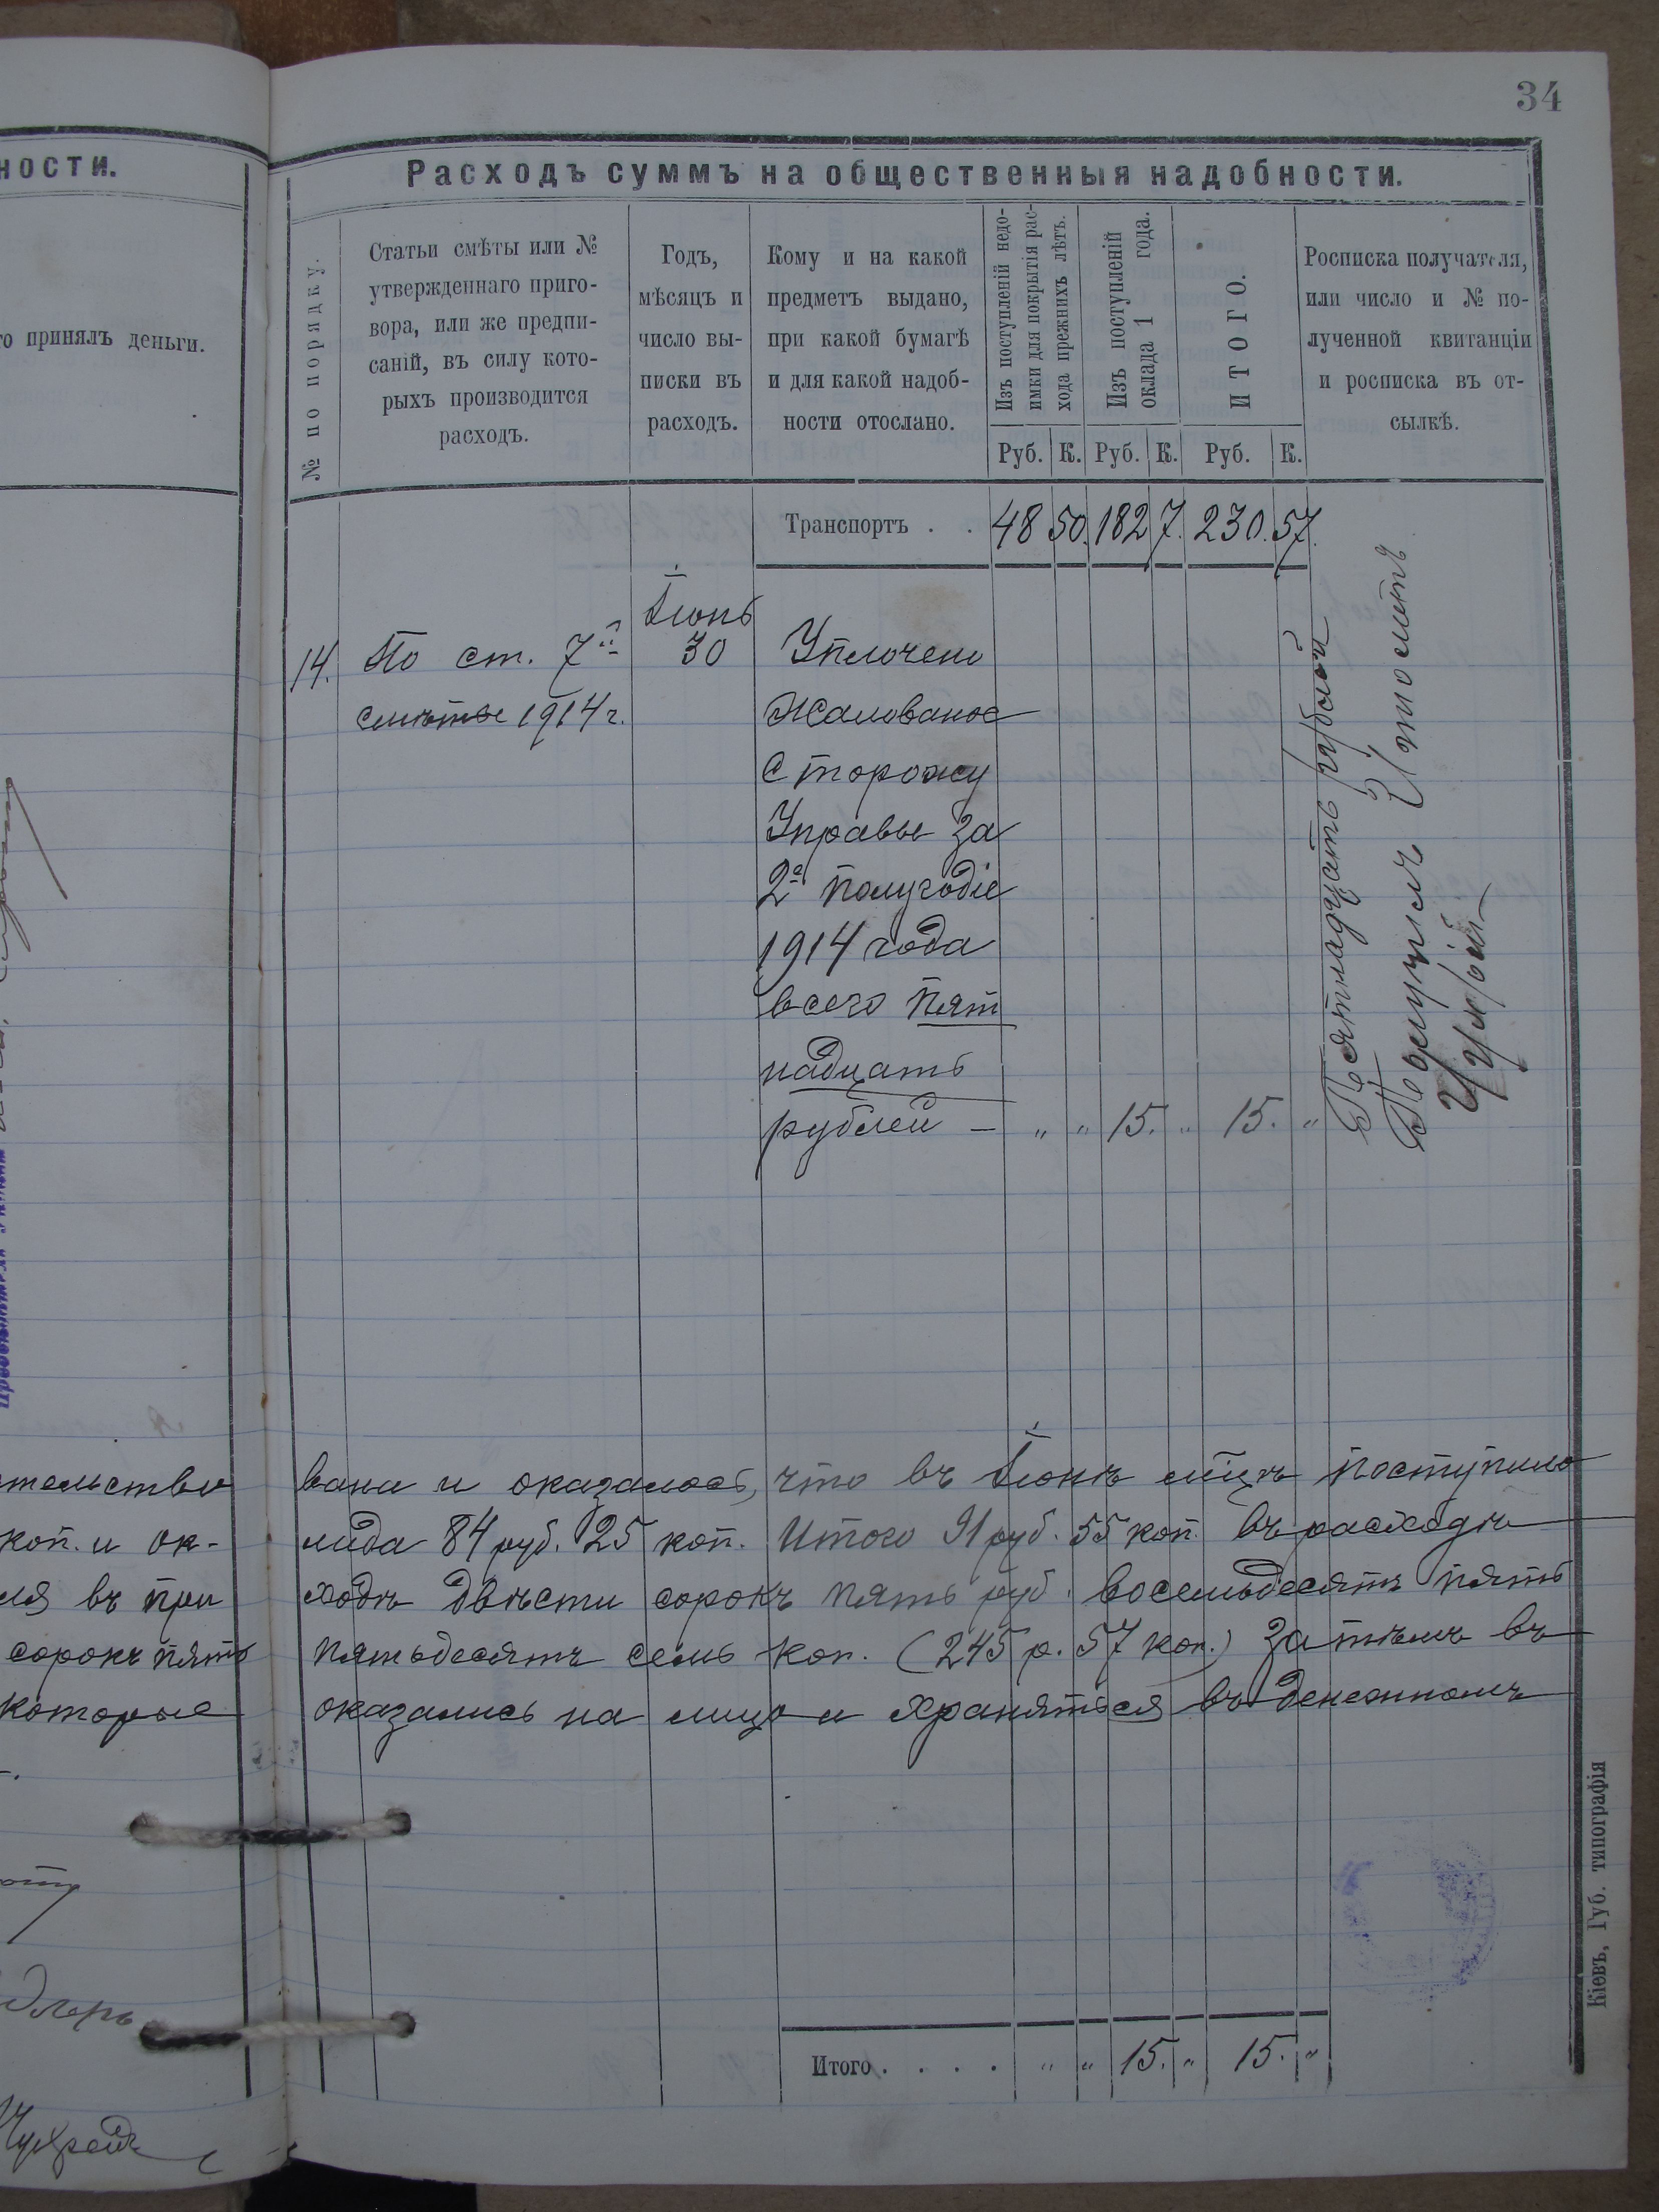 34
ности.
Расходъ суммъ на общественныя надобности.
го принялъ деньги.
№ по порядку.
Статьи смѣты или №
утвержденнаго приго-
вора, или же предпи-
саній, въ силу кото-
рыхъ производится
расходъ.
Годъ,
мѣсяцъ и
число вы-
писки въ
расходъ.
Кому и на какой
предметъ выдано,
при какой бумагѣ
и для какой надоб-
ности отослано.
Изъ поступленій недо-
имки для покрытія рас-
хода прежнихъ лѣтъ.
Изъ поступленій
оклада 1 года.
ИТОГО.
Росписка получателя,
или число и № по-
лученной квитанціи
и росписка въ от-
сылкѣ.
Руб. К. Руб. К. Руб. К.
Транспортъ . . 48 50. 182 7. 230. 57.
Іюнь
14. По ст. 7й 30 Уплочено
смѣты 1914 г. Жалованое
Сторожу
Управы за
2е полугодіе
1914 года
всего пят
надцать
рублей — " " 15. " 15. "
Пятнадцать рублей
Получилъ
тельство
вана и оказалось, что въ Іюнѣ мѣцѣ поступило
коп. и ок-
лада 84 руб. 25 коп. Итого 91 руб. 55 коп. въ расходѣ
ля въ при
ходѣ двѣсти сорокъ пять руб. восемьдесятъ пять
сорокъ пять
пятьдесятъ семь коп. (245 р. 57 коп.) затѣмъ въ
которые
оказались на лицо и хранятся въ денежномъ
Итого . . . . " " 15. " 15. "
Кіевъ, Губ. типографія